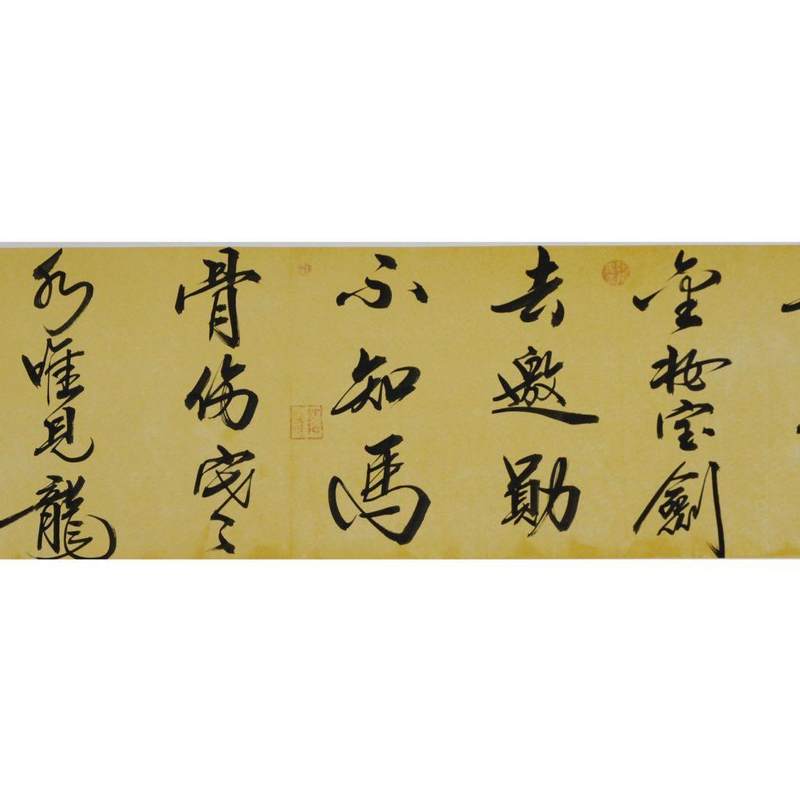 金粧宝劍
去邀勛
不知馬
骨傷寒
水唯見龍